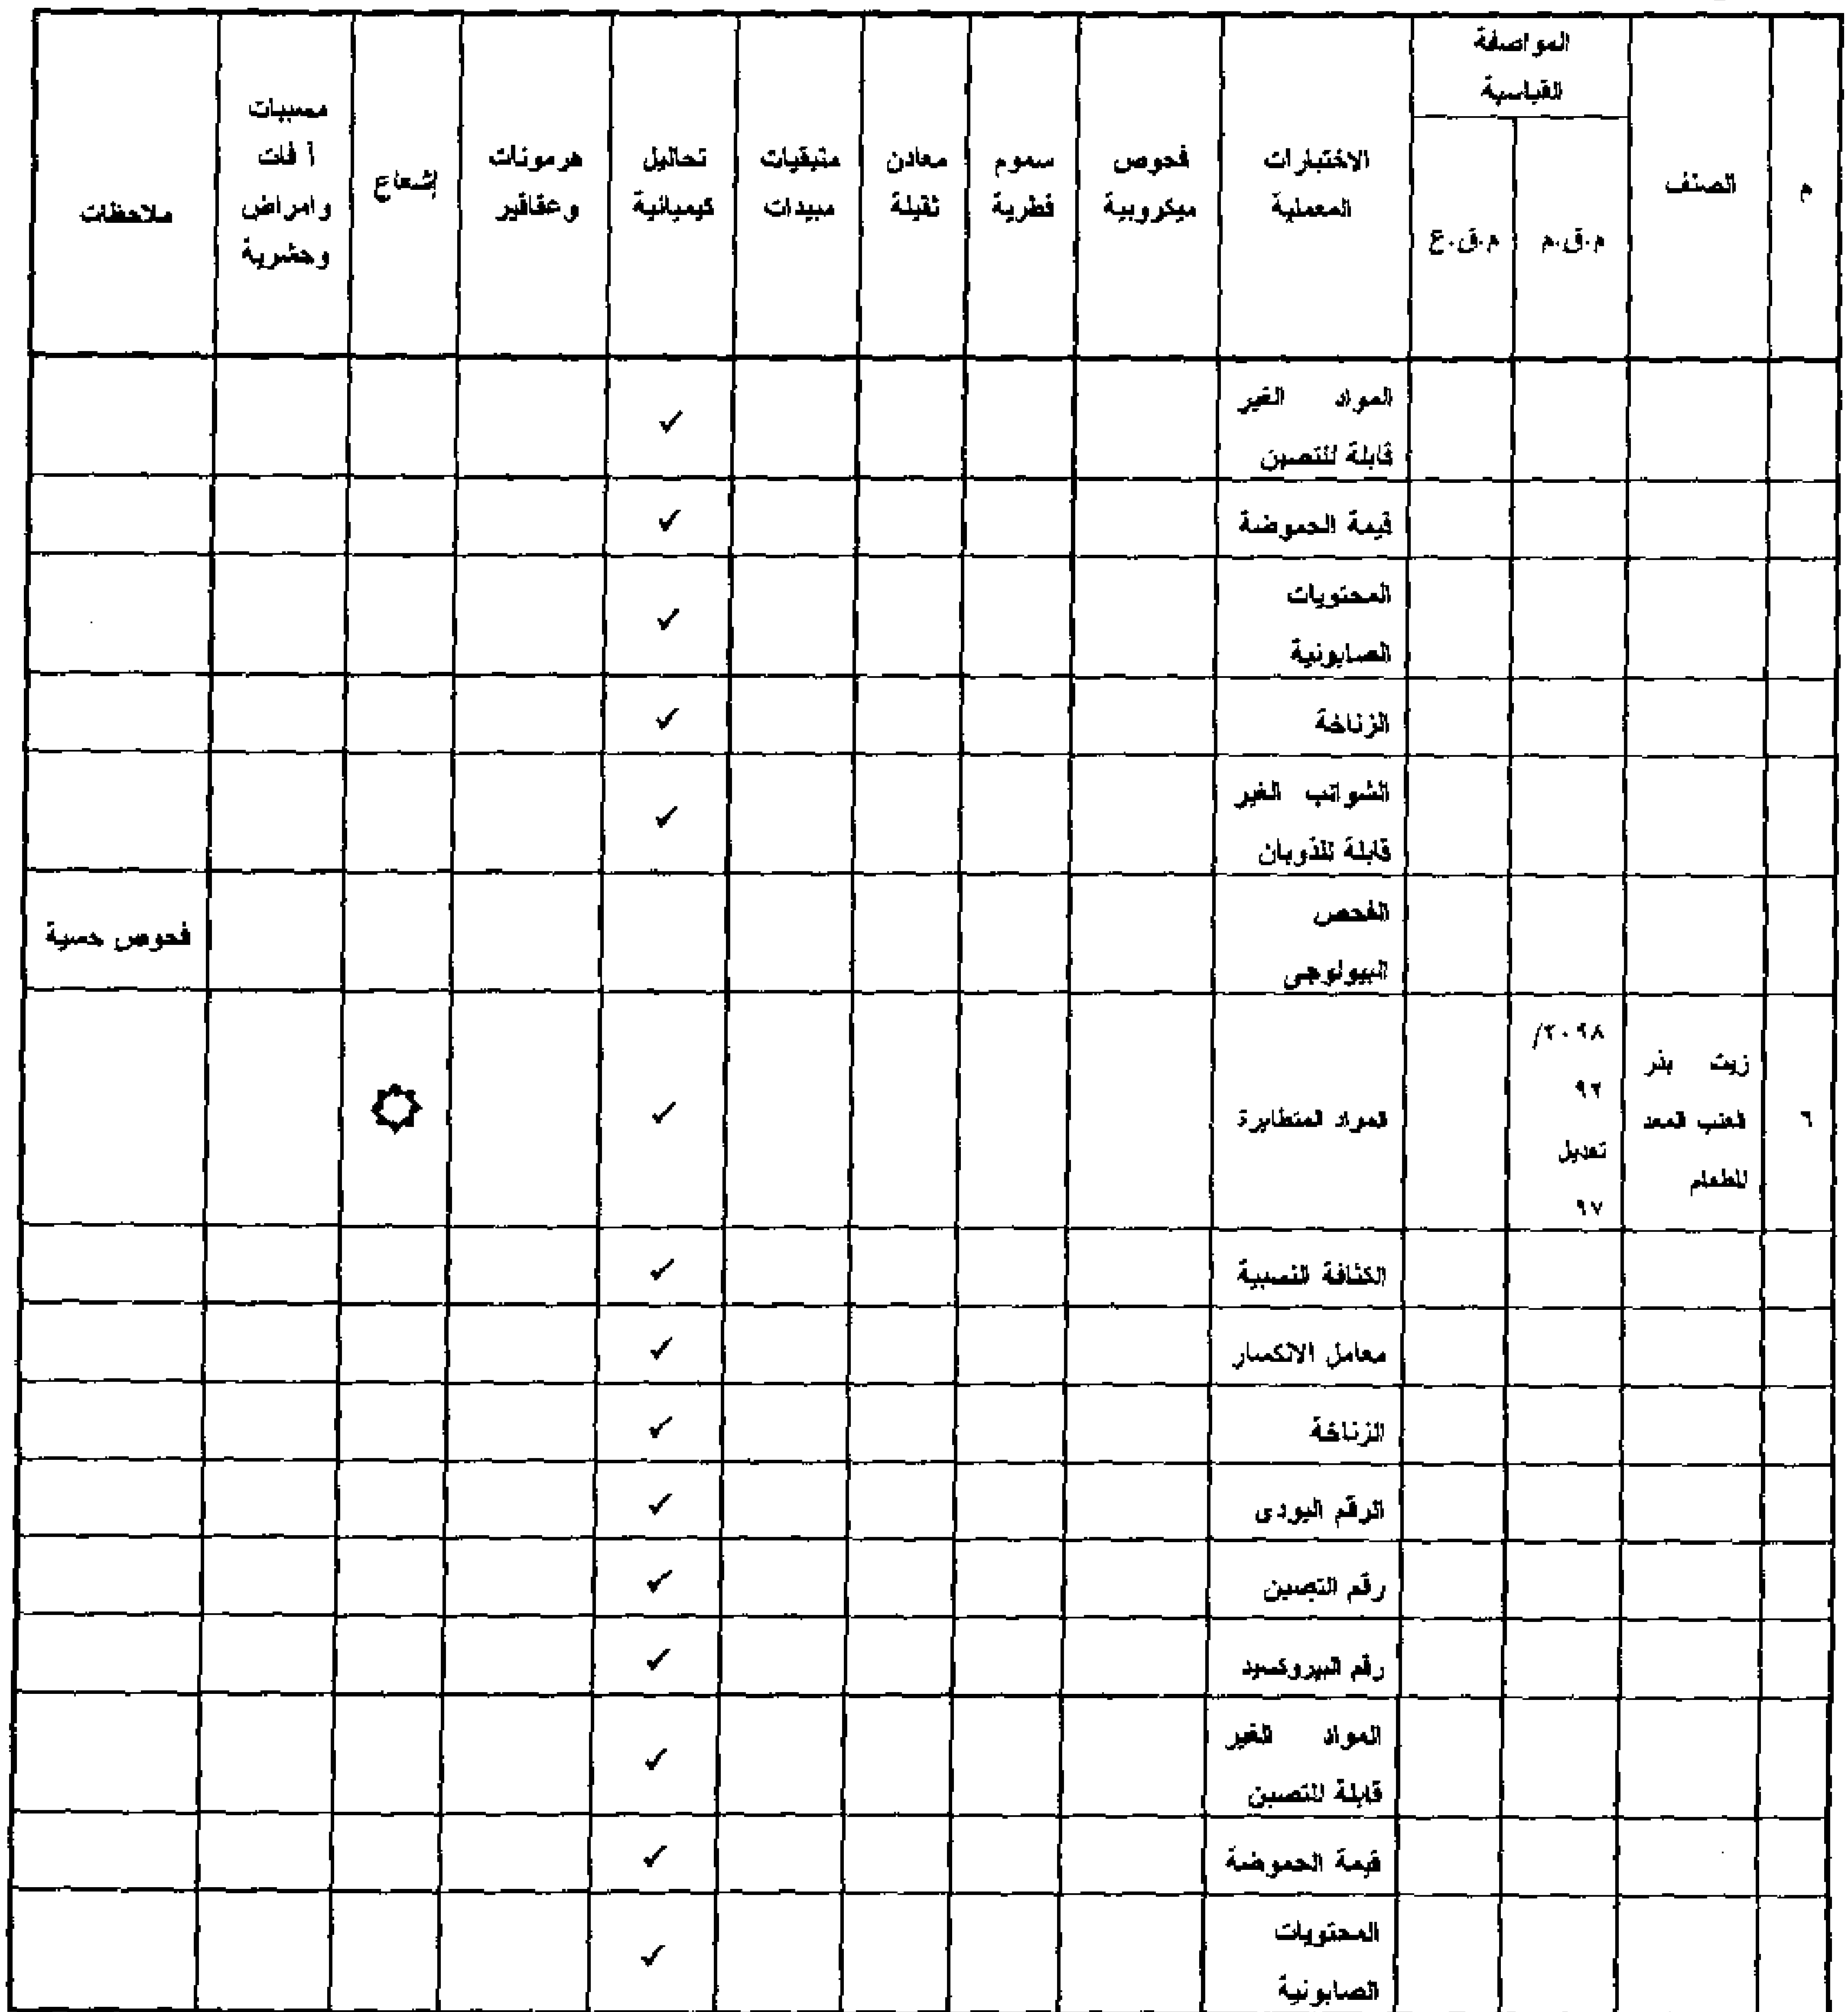 م
الصنف
المواصفة
القياسية
م.ق.م
م.ق.ع
الاختبارات
المعملية
فحوص
ميكروبية
سموم
فطرية
معادن
ثقيلة
متبقيات
مبيدات
تحاليل
كيميائية
هرمونات
وعقاقير
إشعاع
مسببات
آفات
وامراض
وحشرية
ملاحظات
المواد الغير
قابلة للتصبن
✓
قيمة الحموضة
✓
المحتويات
الصابونية
✓
الزناخة
✓
الشوائب الغير
قابلة للذوبان
✓
الفحص
البيولوجى
فحوص حسية
٦
زيت بذر
العنب المعد
للطعام
٢٠٩٨/
٩٢
تعديل
٩٧
المواد المتطايرة
✓
الكثافة النسبية
✓
معامل الانكسار
✓
الزناخة
✓
الرقم اليودى
✓
رقم التصبين
✓
رقم البيروكسيد
✓
المواد الغير
قابلة للتصبن
✓
قيمة الحموضة
✓
المحتويات
الصابونية
✓